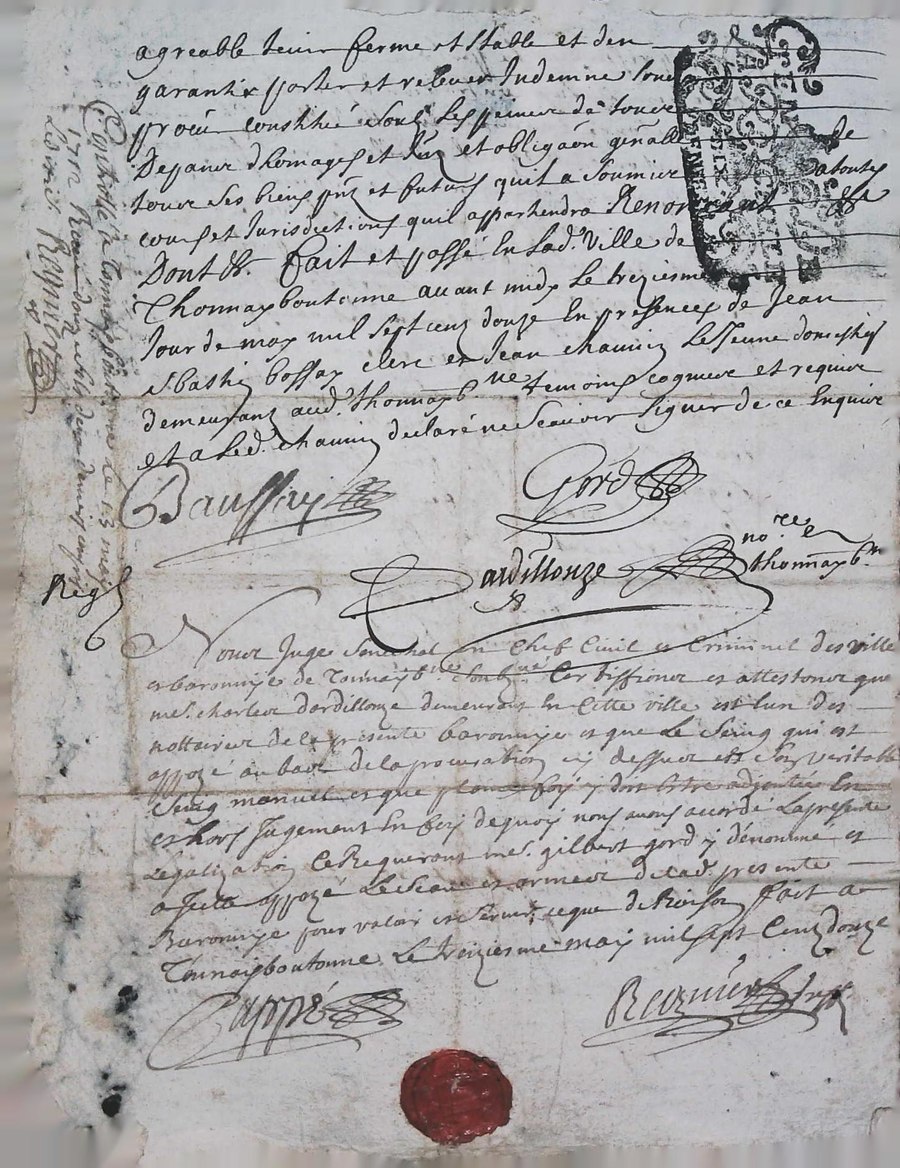 agreable tenir ferme et stable et den
garantir porter et relever Indemne sond
procur constitué soubs les peinnes de tous
Depans dhomages et et obligaon genalle de
tous ses biens pnz et futurs quil a soumier a toutes
cours et Jurisdictions quil appartendra Renonceant &a
Dont &a. Fait et passé En lad. Ville de
Thonnayboutonne avant midy Le treziesme
Jour de may mil sept cens douze En presences de Jean
bossay clerc et Jean chauvin Le Jeune domestiq
demeurans aud. thonnayb.ne temoins cogneus et requis
et a led. chauvin declaré ne scavoir signer de ce Enquis
Baussay
Gord
Dardillouze no.re a thonnayb.ne
Regl
Nous Juge Senechal En Chef Civil et Criminel des ville
et baronnye de Tonnayb.ne soubz.né Certiffions et attestons que
me. charles dardillouze demeurant En cette ville est lun des
nottaires de la presente baronnye et que Le Seing qui est
appozé au bas de la procuration cy dessus est son veritable
Seing manuel et que plaine foy y doit Estre adjoutée En
et hors Jugement En foy de quoy nous avons accordé La presente
Legalization Ce Requerant me. gilbert gord y dénommé et
a Icelle appozé Le Sceau et armes de lad. presente
Baronnye pour valoir et servir ce que de Raison fait a
Tonnayboutonne Le treziesme may mil sept Cens douze
Cappé
Regnier
Controllé a Tonnayboutonne Le 13 may
1712 Receu douze sols
Regnier